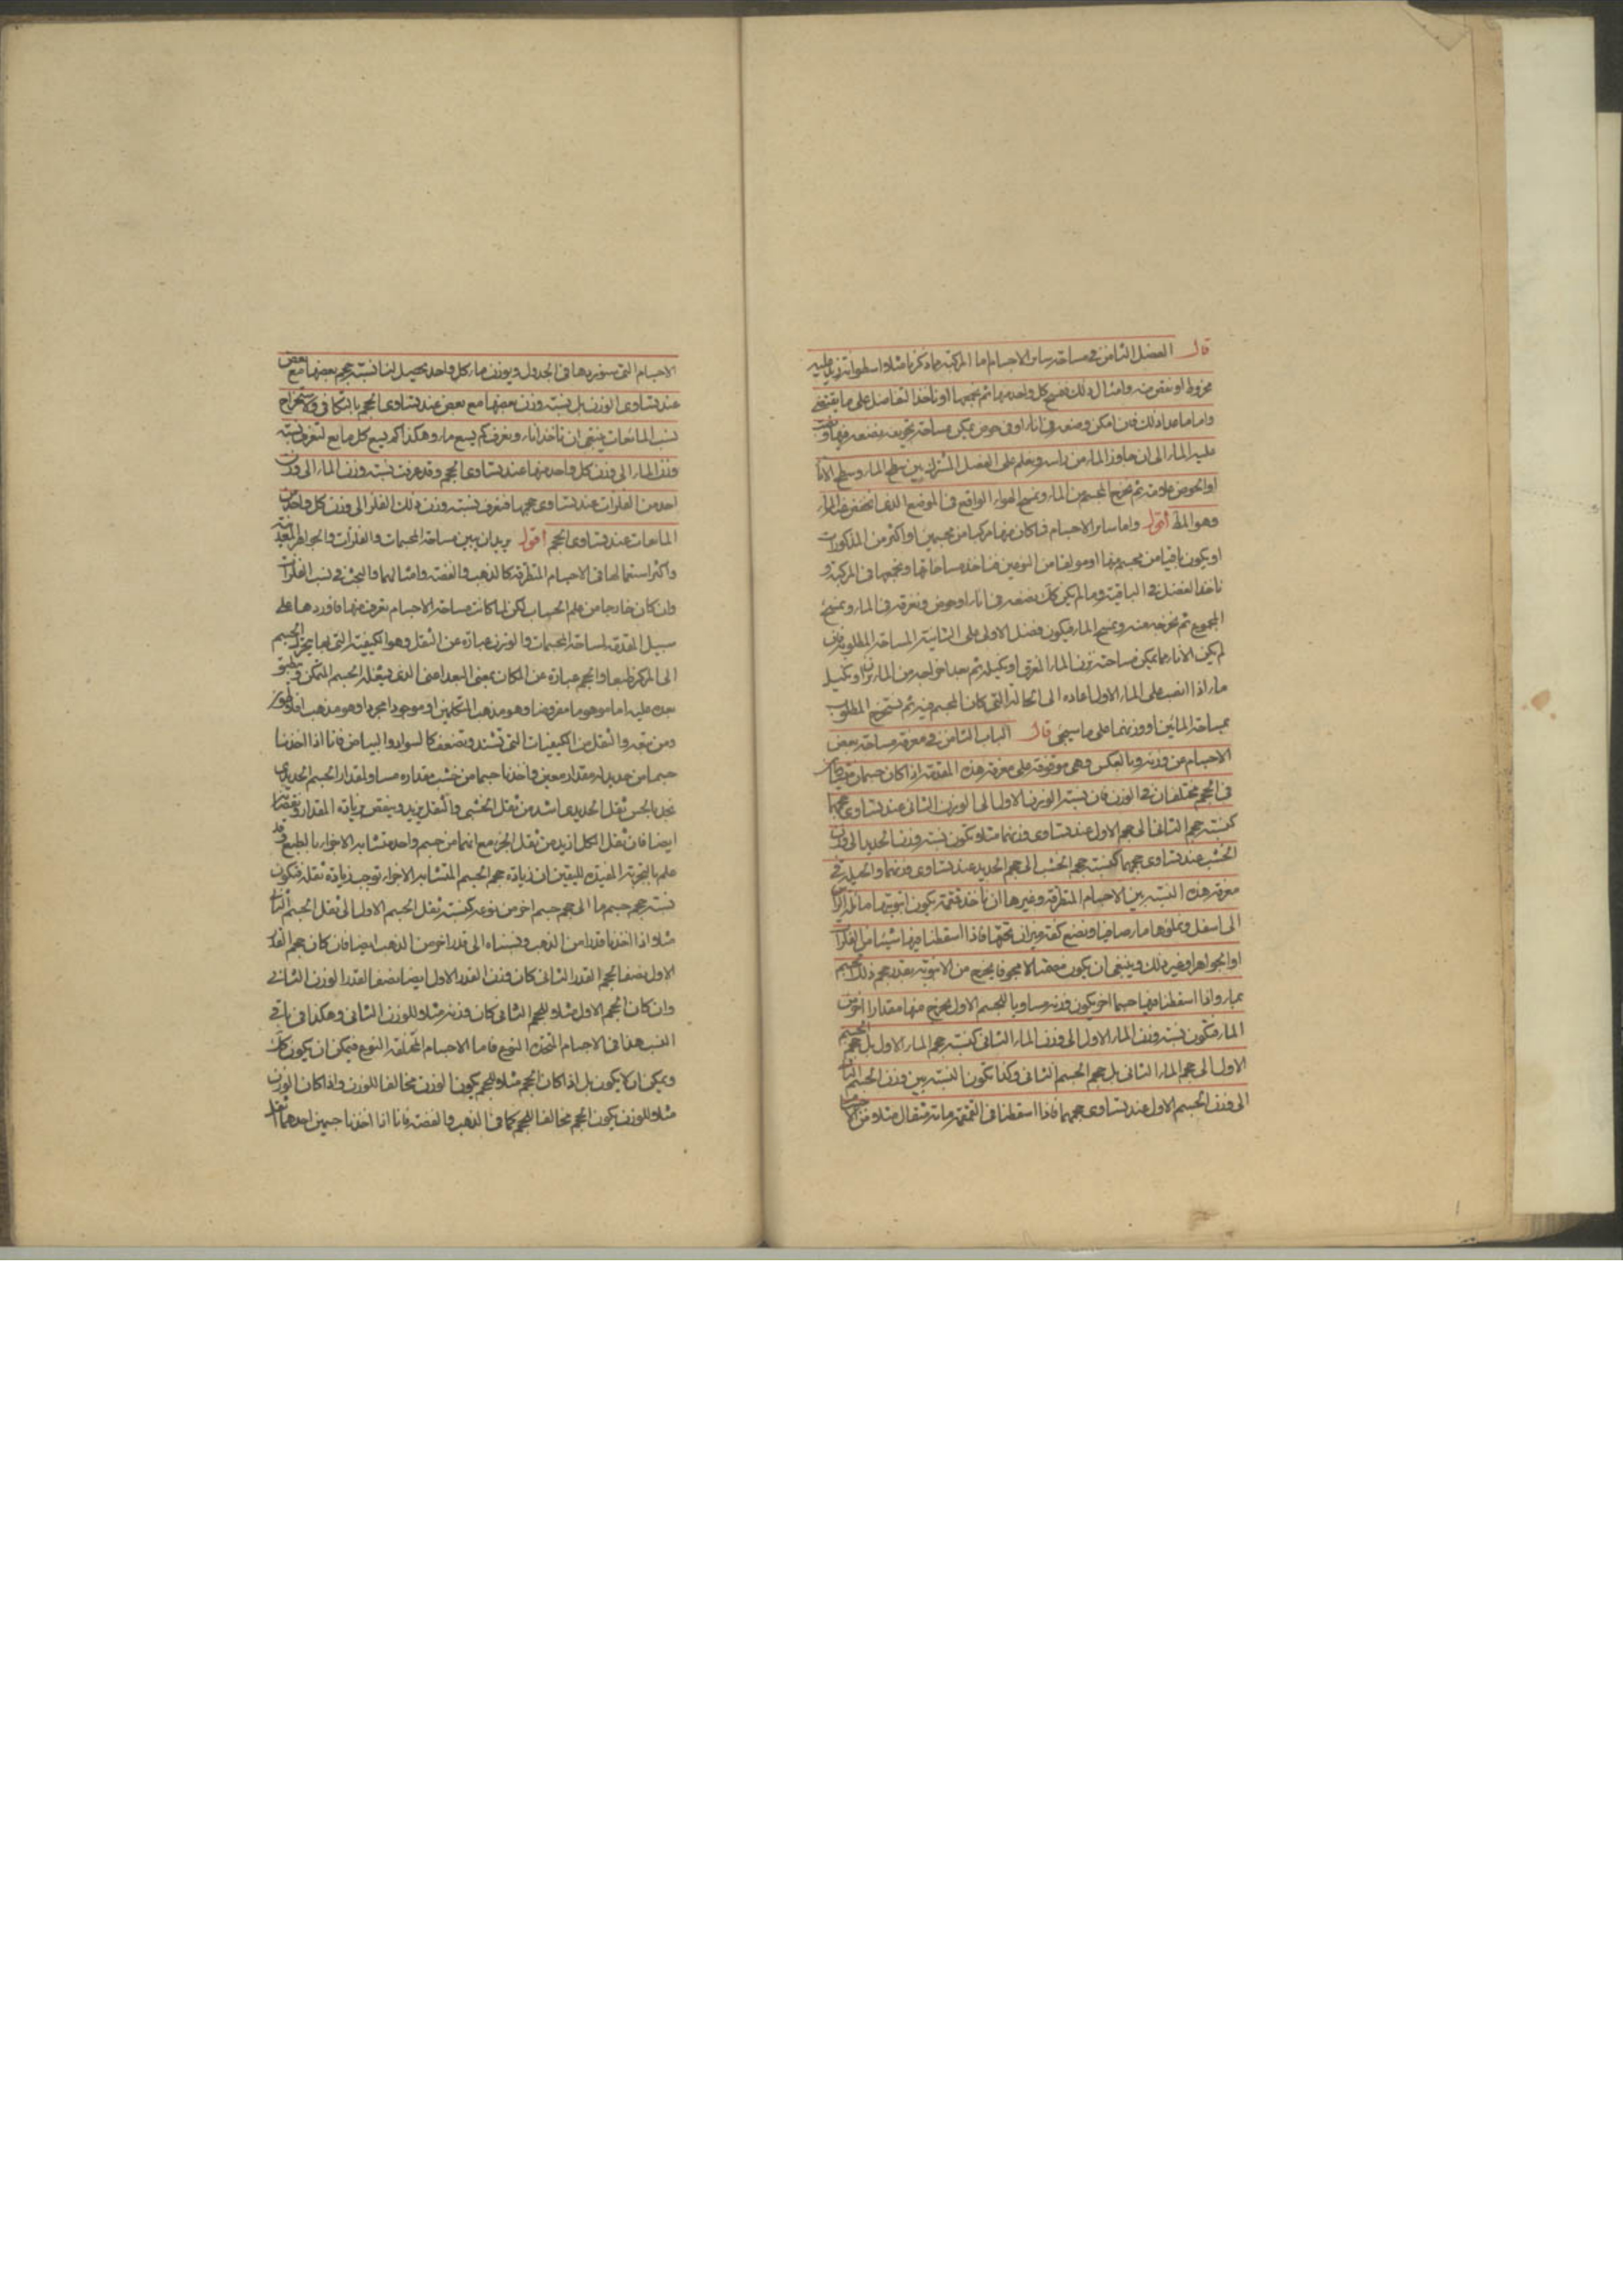 قال الفصل الثامن في مساحة ساير الاجسام اما المركبة مما ذكرنا مثلا اسطوانة زيد عليه
مخروط او نقص منه وامثال ذلك فنمسح كل واحد منهما ثم نجمعهما او ناخذ التفاضل على ما يقتضى
واما ما عدا ذلك فان امكن وضعه في اناء او في حوض يمكن مساحة تجويفه فنضعه فيه
عليه الماء الى ان جاوز الماء من راسه ونعلم على الفصل المشترك بين سطح الماء وسطح الاناء
او الحوض علامة ثم نخرج المجسم من الماء ونمسح الهواء الواقع في الموضع الذى انخفض عنه الماء
وهو المط اقول واما ساير الاجسام فما كان منها مركبا من مجسمين او اكثر من المذكورات
او يكون باقيا من مجسم منها او مولفا من النوعين فناخذ مساحاتها ونجمعها في المركبة و
ناخذ الفضل في الباقية وما لم يكن كك نضعه في اناء او حوض ونغرقه في الماء ونمسح
المجموع ثم نخرجه عنه ونمسح الماء فيكون فضل الاولى على الثانية المساحة المطلوبة فان
لم يكن الاناء مما يمكن مساحته نزن الماء المغرق او نكيله ثم بعد اخراجه من الماء نزن او نكيل
ماء اذا انصب على الماء الاول اعاده الى الحالة التى كان المجسم فيه ثم نستخرج المطلوب
بمساحة المائين او وزنهما على ما سيجى قال الباب الثامن في معرفة مساحة بعض
الاجسام من وزنه وبالعكس وهى موقوفة على معرفة هذه المقدمة اذا كان جسمان متساويان
في الحجم مختلفان في الوزن فان نسبة الوزن الاول الى الوزن الثانى عند تساوى حجمهما
كنسبة حجم الثانى الى حجم الاول عند تساوى وزنهما مثلا تكون نسبة وزن الحديد الى وزن
الخشب عند تساوى حجمهما كنسبة حجم الخشب الى حجم الحديد عند تساوى وزنهما والحيلة في
معرفة هذه النسبة بين الاجسام المتطرقة وغيرها ان ناخذ قمقمة يكون انبوبتها مائلة الراس
الى اسفل ونملؤها ماء صافيا ونضع كفة ميزان تحتها فاذا اسقطنا فيها شيئا من الفلزات
او الجواهر او غير ذلك وينبغى ان يكون مصمتا لا مجوفا يخرج من الانبوبة بقدر حجم ذلك الجسم
ماء واذا اسقطنا فيها جسما اخر يكون وزنه مساويا للجسم الاول يخرج منها مقدار اخر من
الماء فتكون نسبة وزن الماء الاول الى وزن الماء الثانى كنسبة حجم الماء الاول بل حجم الجسم
الاول الى حجم الماء الثانى بل حجم الجسم الثانى وكذا تكون النسبة بين وزن الجسم الثانى
الى وزن الجسم الاول عند تساوى حجمهما فاذا اسقطنا في القمقمة مائة مثقال مثلا من
الاجسام التى سنوردها في الجدول ويوزن ماء كل واحد يحصل لنا نسبة حجم بعضها مع بعض
عند تساوى الوزن بل نسبة وزن بعضها مع بعض عند تساوى الحجم بالتكافى ولاستخراج
نسب المائعات ينبغى ان ناخذ اناء ونعرف كم يسع ماء وهكذا كم يسع كل مايع لنعرف نسبة
وزن الماء الى وزن كل واحد منها عند تساوى الحجم وقد عرفت نسبة وزن الماء الى وزن
احد من الفلزات عند تساوى حجمها فنعرف نسبة وزن ذلك الفلز الى وزن كل واحد من
المايعات عند تساوى الحجم اقول يريد ان يبين مساحة المجسمات والفلزات والجواهر المعدنية
واكثر استعمالها في الاجسام المتطرقة كالذهب والفضة وامثالهما والبحث في نسب الفلزات
وان كان خارجا من علم الحساب لكن لما كانت مساحة الاجسام تعرف منها فاوردها على
سبيل المقدمة لمساحة المجسمات والوزن عبارة عن الثقل وهو الكيفية التى بها يتحرك الجسم
الى المركز طبعا والحجم عبارة عن المكان بمعنى البعد اعنى الذى يشغله الجسم المتمكن وينطبق
بعده عليه اما موهوما مفروضا وهو مذهب المتكلمين او موجودا مجردا وهو مذهب افلاطون
ومن تبعه والثقل من الكيفيات التى تشتد وتضعف كالسواد والبياض فانا اذا اخذنا
جسما من حديد له مقدار معين واخذنا جسما من خشب مقداره مساو لمقدار الجسم الحديدى
نجد بالحس ثقل الحديدى اشد من ثقل الخشبى والثقل يزيد وينقص بزيادة المقدار ونقصانه
ايضا فان ثقل الكل ازيد من ثقل الجزء مع انهما من جسم واحد متشابه الاجزاء بالطبع وقد
علم بالتجربة المفيدة لليقين ان زيادة حجم الجسم المتشابه الاجزاء توجب زيادة ثقله فتكون
نسبة حجم جسم ما الى حجم جسم اخر من نوعه كنسبة ثقل الجسم الاول الى ثقل الجسم الثانى
مثلا اذا اخذنا قدرا من الذهب ونسبناه الى قدر اخر من الذهب ايضا فان كان حجم القدر
الاول نصف الحجم القدر الثانى كان وزن القدر الاول ايضا نصف القدر الوزن الثانى
وان كان الحجم الاول مثلا للحجم الثانى كان وزنه مثلا للوزن الثانى وهكذا في باقى
النسب هذا في الاجسام المتحدة النوع فاما الاجسام المختلفة النوع فيمكن ان يكون كك
ويمكن ان لا يكون بل اذا كان الحجم مثلا للحجم يكون الوزن مخالفا للوزن واذا كان الوزن
مثلا للوزن يكون الحجم مخالفا للحجم كما في الذهب والفضة فانا اذا اخذنا جسمين احدهما